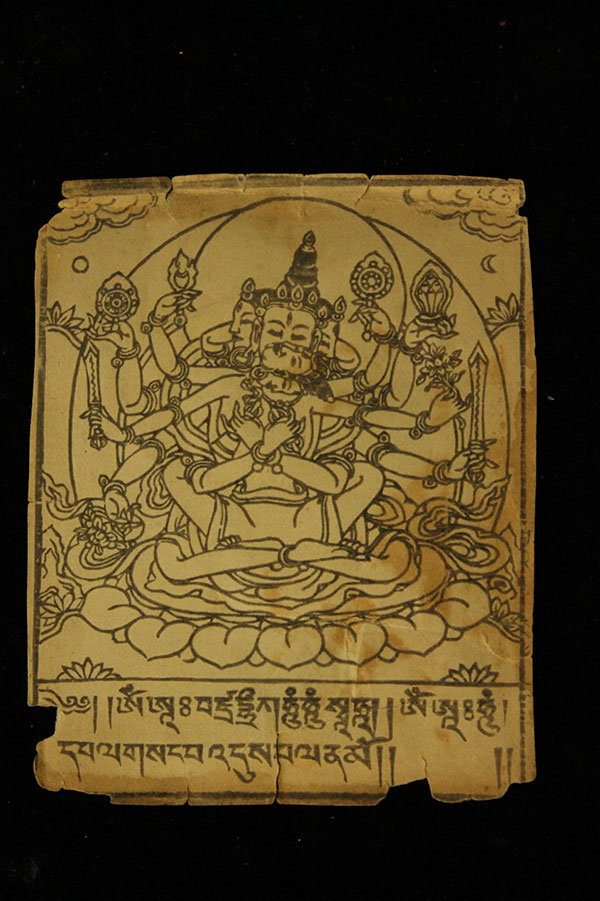 ༄༅། །ཨོཾ་ཨཱཿབཛྲ་དྷྲྀཀ་ཧཱུྃ་ཧཱུྃ་སྭཱཧཱ། །ཨོཾ་ཨཱཿཧཱུྃ།
དཔལ་གསང་བ་འདུས་པ་ལ་ན་མོ།། །།